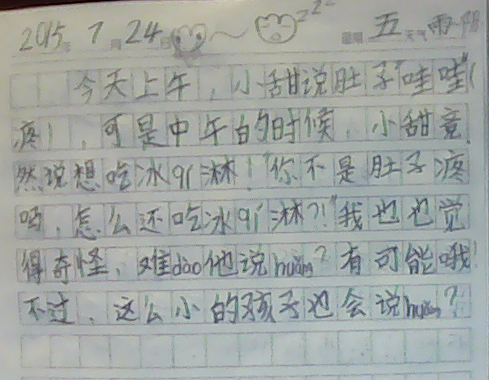 2015年7月24日 星期五 天气
今天上午，小甜说肚子“哇哇”(
疼)，可是中午的时候，小甜竟
然说想吃冰qi淋！“你不是肚子疼
吗，怎么还吃冰qi淋?！”我也也觉
得奇怪，难dào他说huǎng？有可能哦!
不过，这么小的孩子也会说huǎng？